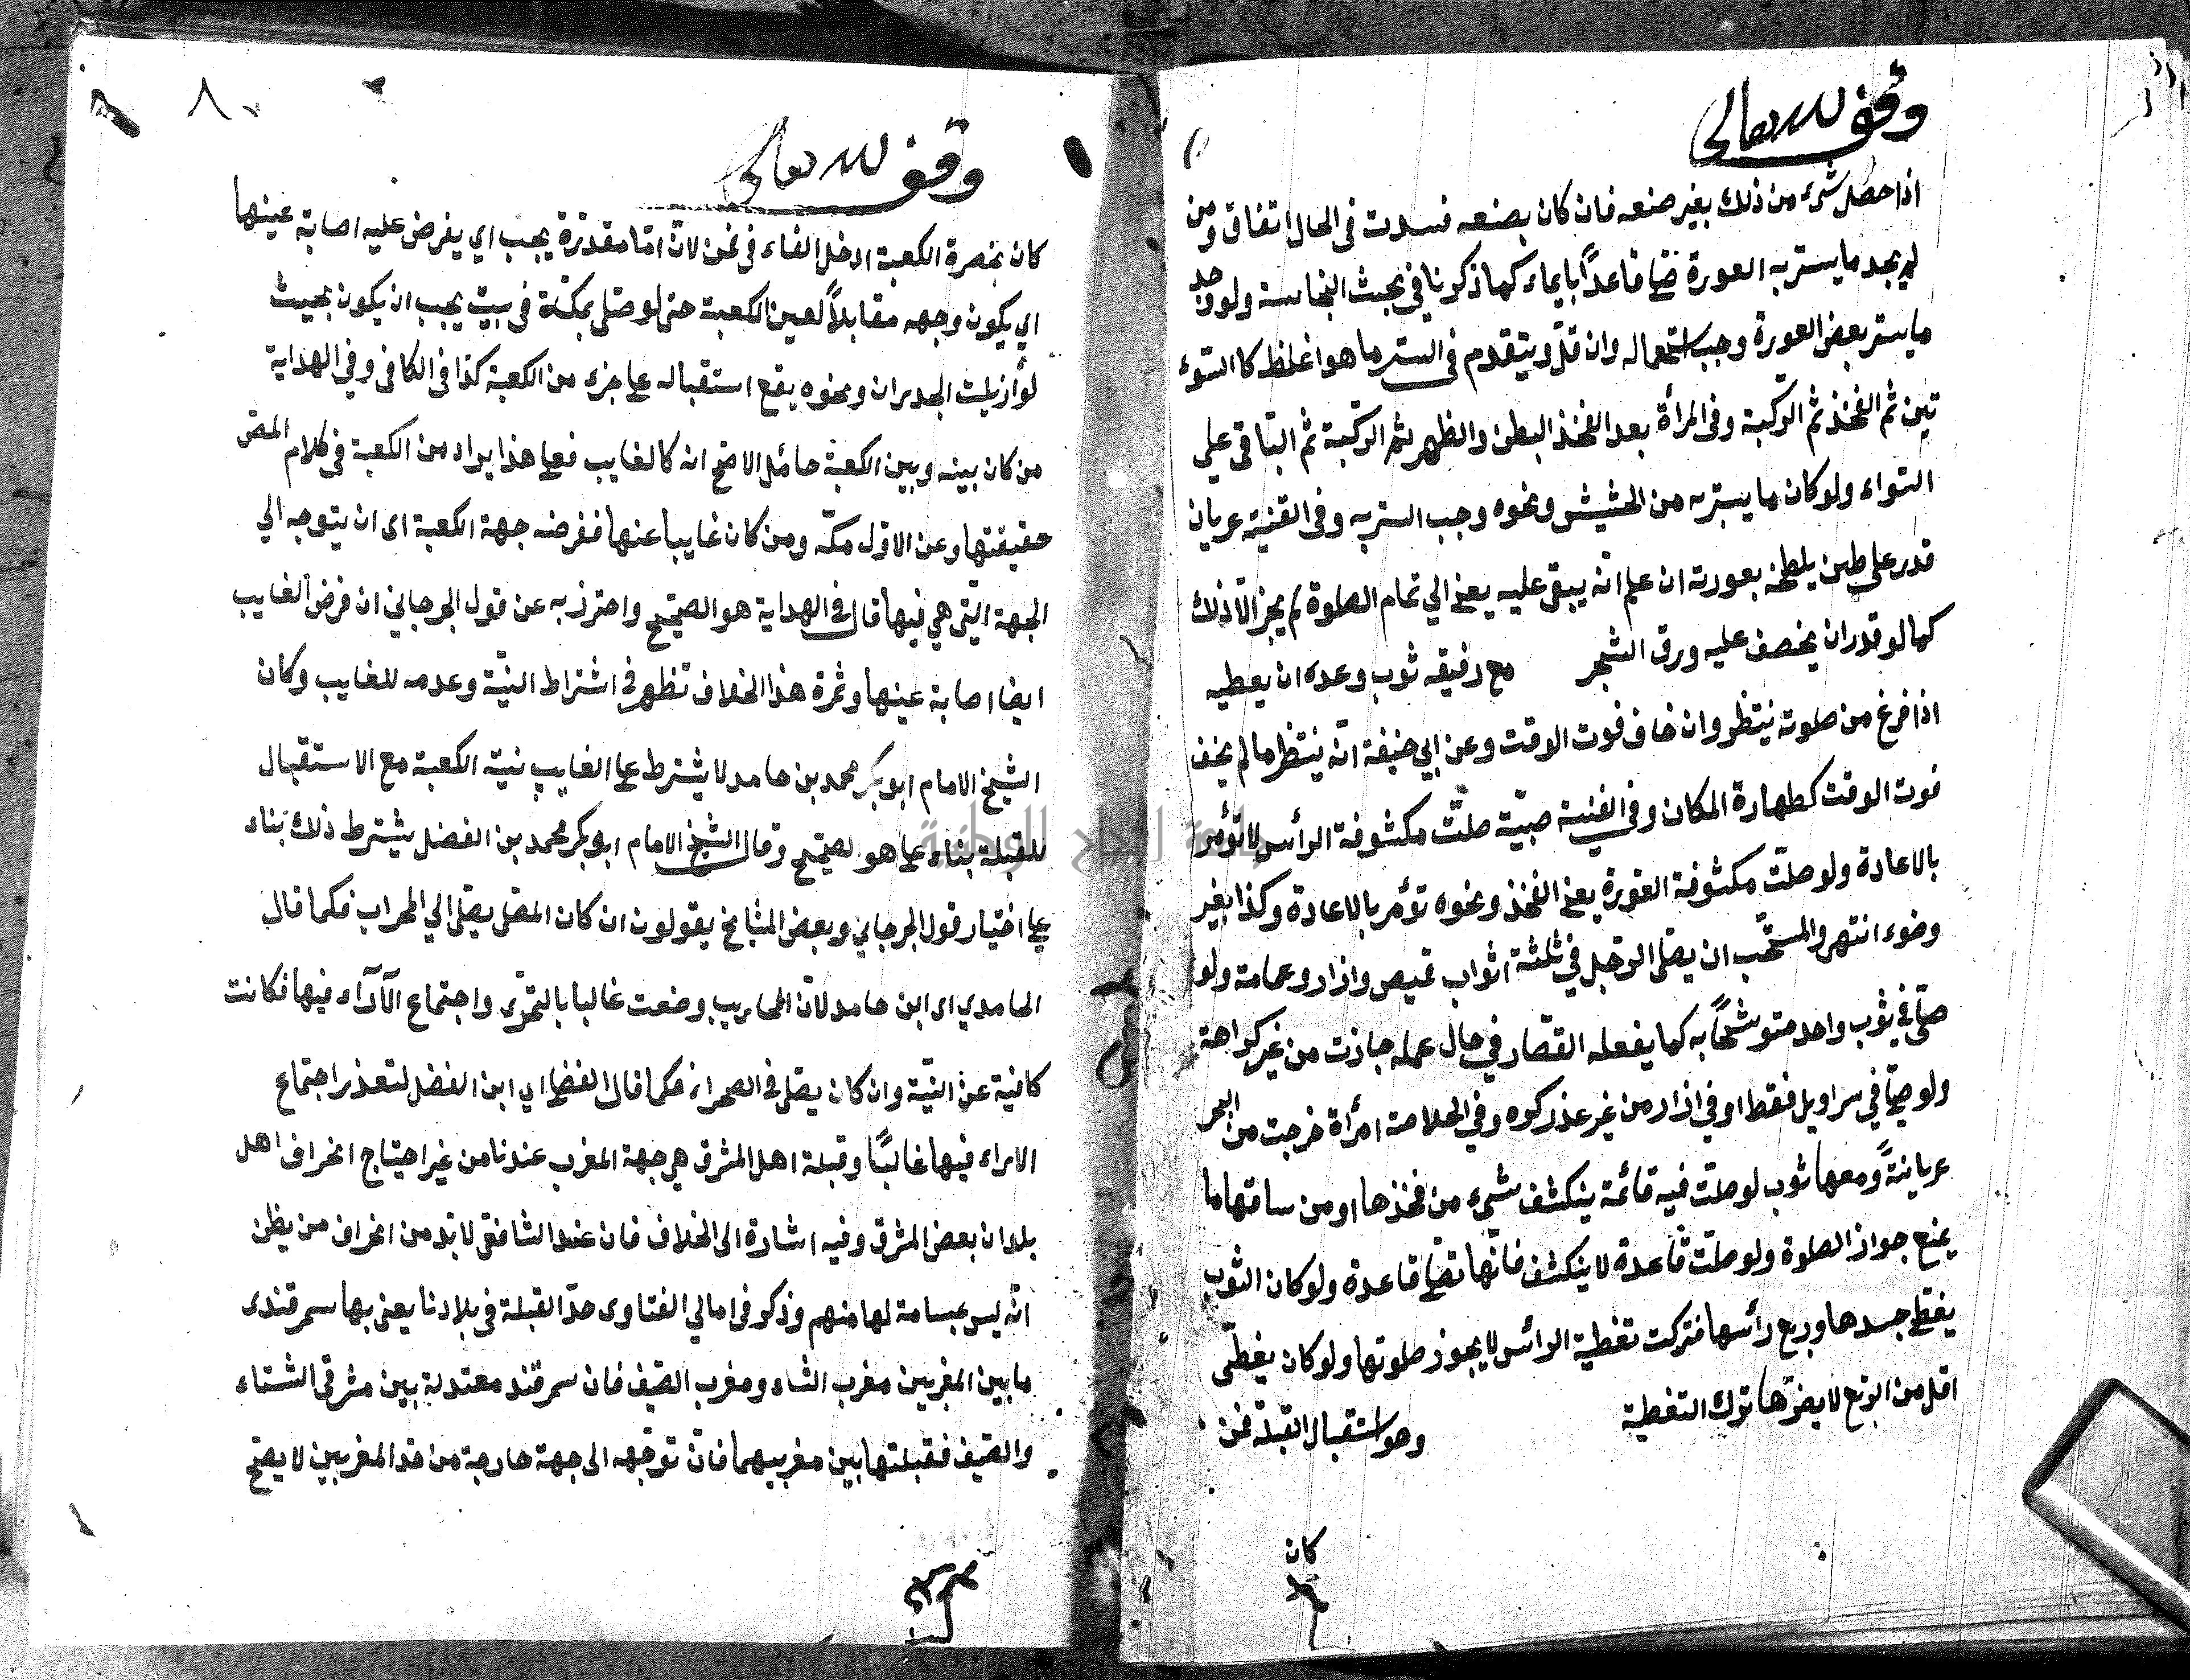 وقف لله تعالى
اذا حصل شيء من ذلك بغير صنعه فان كان بصنعه فسدت في الحال اتفاق ومن
لم يجد ما يستر به العورة صلى قاعدًا بايماء كما ذكرنا في بحث النجاسة ولو وجد
ما يستر بعض العورة وجب استعماله وان قلّ ويتقدم في الستر ما هو اغلظ كالسّوء
تين ثم الفخذ ثم الرّكبة وفي المرأة بعد الفخذ البطن والظهر ثم الرّكبة ثم الباقي على
السّواء ولو كان ما يستر به من الحشيش ونحوه وجب الستر به وفي القنية عريان
قدر على طين يلطخ بعورته ان علم انّه يبقى عليه يعني الي تمام الصلوة لم يجز الّا ذلك
كما لو قدر ان يخصف عليه ورق الشجر مع رفيقه ثوب وعده ان يعطيه
اذا فرغ من صلوته ينتظر وان خاف فوت الوقت وعن ابي حنيفة انّه ينتظر ما لم يخف
فوت الوقت كطهارة المكان وفي القنية صبيّة صلّت مكشوفة الرأس لا تؤمر
بالاعادة ولو صلّت مكشوفة العورة يعني الفخذ ونحوه تؤمر بالاعادة وكذا بغير
وضوء انتهى والمستحّب ان يصلّى الرّجل في ثلثة اثواب قميص وازار وعمامة ولو
صلّى في ثوب واحد متوشحًا به كما يفعله القصّار في حال عمله جازت من غير كراهة
ولو صلّى في سراويل فقط او في ازار من غير عذر كره وفي الخلاصة امرأة خرجت من البحر
عريانةً ومعها ثوب لو صلّت فيه قائمة ينكشف شيء من فخذها او من ساقها ما
يمنع جواز الصلوة ولو صلّت قاعدة لا ينكشف فانّها تصلّى قاعدة ولو كان الثوب
يغطّى جسدها وربع رأسها فتركت تغطية الرأس لا يجوز صلوتها ولو كان يغطّى
اقل من الربع لا يضرّها ترك التغطية وهو استقبال القبلة فمن
كان
وقف لله تعالى
كان بحضرة الكعبة ادخل الفاء في فمن لانّ امّا مقدّرة يجب اي يفرض عليه اصابة عينها
اي يكون وجهه مقابلاً لعين الكعبة حتى لو صلّى بمكّة في بيت يجب ان يكون بحيث
لو ازيلت الجدران ونحوه يقع استقباله على جزء من الكعبة كذا في الكافي وفي الهداية
من كان بينه وبين الكعبة حائل الاصح انه كالغايب فعلى هذا يراد من الكعبة في كلام المص
حقيقتها وعن الاوّل مكّة ومن كان غايبا عنها ففرضه جهة الكعبة اى ان يتوجه الي
الجهة الّتي هي فيها قال في الهداية هو الصحيح واحترز به عن قول الجرجاني ان فرض الغايب
ايضا اصابة عينها وثمرة هذا الخلاف تظهر في اشتراط النيّة وعدمه للغايب وكان
الشيخ الامام ابو بكر محمد بن حامد لا يشترط على الغايب نيّة الكعبة مع الاستقبال
للقبلة بناء على ما هو لصحيح وقال الشيخ الامام ابو بكر محمد بن الفضل يشترط ذلك بناء
على اختيار قول الجرجاني وبعض المشايخ يقولون ان كان المصلى يصلى الي المحراب فكما قال
الحامدي اى ابن حامد لانّ المحاريب وضعت غالبا بالتحرّى واجتماع الآراء فيها فكانت
كافية عن النيّة وان كان يصلى في الصحراء فكما قال الفضلى اي ابن الفضل لتعذر اجتماع
الاراء فيها غالبًا وقبلة اهل المشرق هي جهة المغرب عندنا من غير احتياج انحراف اهل
بلدان بعض المشرق وفيه اشارة الى الخلاف فان عند الشافعى لا بّد من انحراف من يظن
انّه ليس بمسامتة لها منهم وذكر في امالي الفتاوى حدّ القبلة في بلادنا يعنى بها سمرقندى
ما بين المغربين مغرب الشتاء ومغرب الصّيف فان سمرقند معتدلة بين مشرقى الشتاء
والصّيف فقبلتها بين مغربيهما فانّ توجّهه الى جهة خارجة من حد المغربين لا يصح